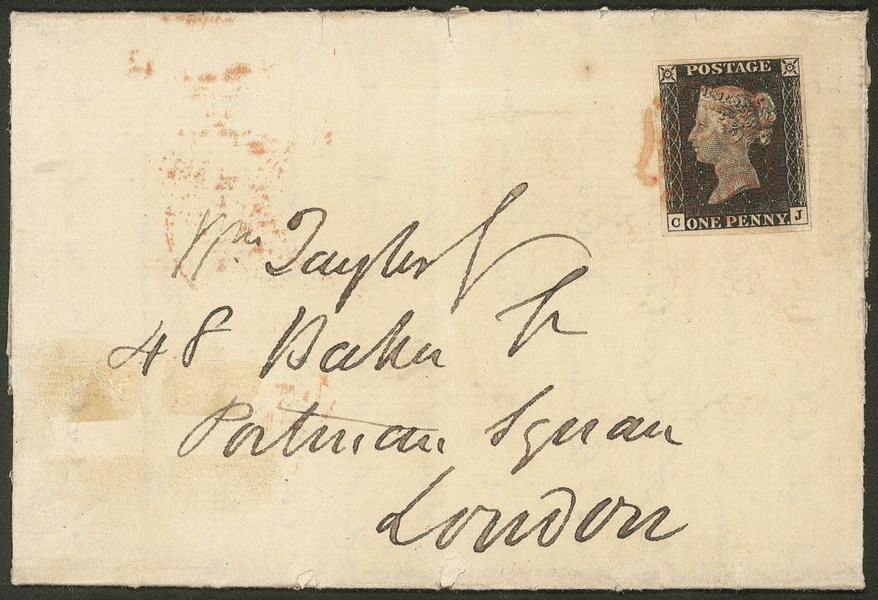 POSTAGE
ONE PENNY.
C J
Wm Taylor
48 Baker St
Portman Square
London